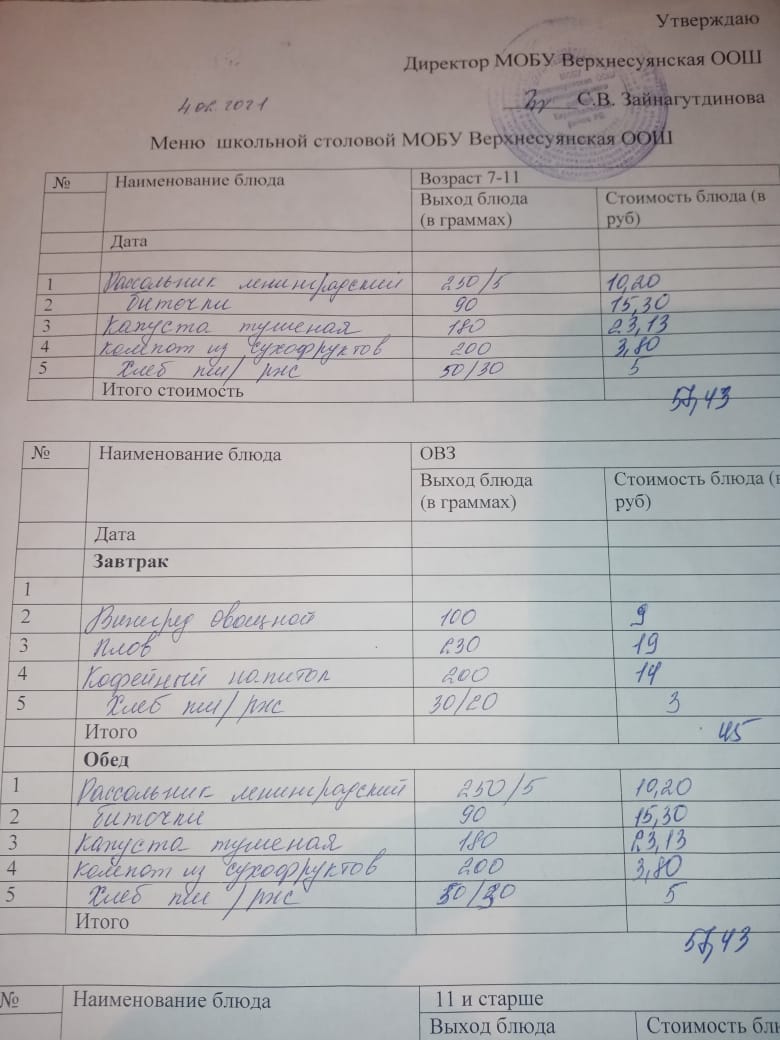 Утверждаю
Директор МОБУ Верхнесуянская ООШ
4.02.2021
С.В. Зайнагутдинова
Меню школьной столовой МОБУ Верхнесуянская ООШ
№ Наименование блюда Возраст 7-11
Выход блюда (в граммах) Стоимость блюда (в руб)
Дата
1 Рассольник ленинградский 250/5 10,20
2 биточки 90 15,30
3 Капуста тушеная 180 23,13
4 компот из сухофруктов 200 3,80
5 Хлеб пш/ржс 50/30 5
Итого стоимость 57,43
№ Наименование блюда ОВЗ
Выход блюда (в граммах) Стоимость блюда (в руб)
Дата
Завтрак
1
2 Винегред овощной 100 9
3 плов 230 19
4 Кофейный напиток 200 14
5 Хлеб пш/ржс 30/20 3
Итого 45
Обед
1 Рассольник ленинградский 250/5 10,20
2 биточки 90 15,30
3 Капуста тушеная 180 23,13
4 компот из сухофруктов 200 3,80
5 Хлеб пш/ржс 50/30 5
Итого 57,43
№ Наименование блюда 11 и старше
Выход блюда Стоимость блю